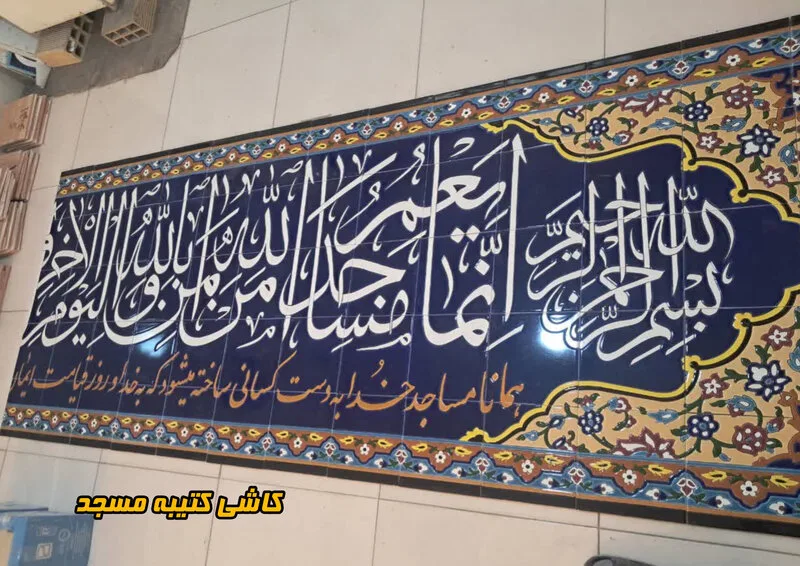 بسم الله الرحمن الرحیم
إنما یعمر مساجد الله من آمن بالله والیوم الآخر
همانا مساجد خدا به دست کسانی ساخته میشود که به خدا و روز قیامت ایمان
کاشی کتیبه مسجد